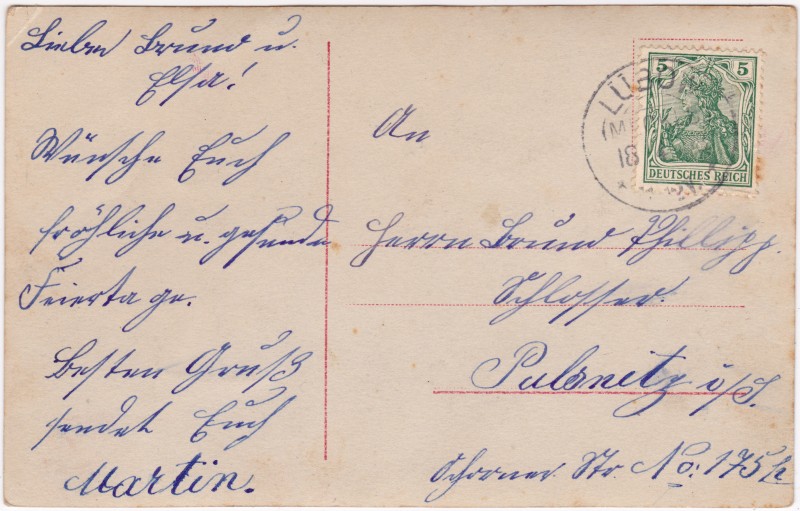 Lieber Bruno u.
Elsa!
Wünsche Euch
fröhliche u. gesunde
Feiertage.
Besten Gruß
sendet Euch
Martin.
5 5
DEUTSCHES REICH
LÜB
(M
18
An
Herrn Bruno Phillipp.
Schlosser.
Pulsnitz i/S.
Str. No: 175